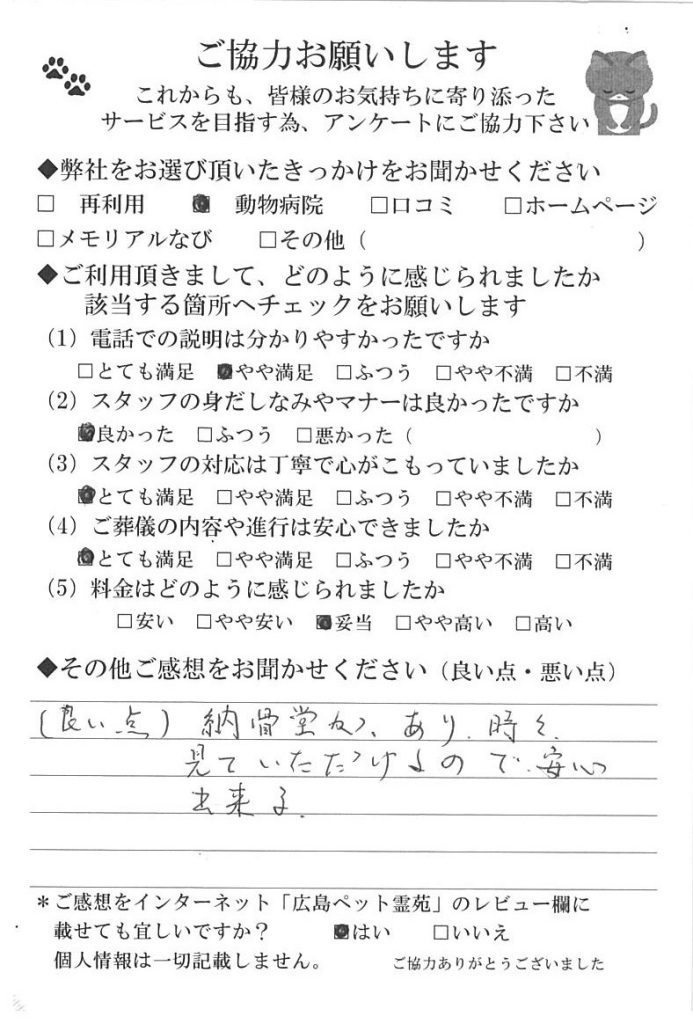 ご協力お願いします
これからも、皆様のお気持ちに寄り添った
サービスを目指す為、アンケートにご協力下さい
◆弊社をお選び頂いたきっかけをお聞かせください
□ 再利用 ■ 動物病院 □口コミ □ホームページ
□メモリアルなび □その他（ ）
◆ご利用頂きまして、どのように感じられましたか
該当する箇所へチェックをお願いします
（1）電話での説明は分かりやすかったですか
□とても満足 ■やや満足 □ふつう □やや不満 □不満
（2）スタッフの身だしなみやマナーは良かったですか
■良かった □ふつう □悪かった（ ）
（3）スタッフの対応は丁寧で心がこもっていましたか
■とても満足 □やや満足 □ふつう □やや不満 □不満
（4）ご葬儀の内容や進行は安心できましたか
■とても満足 □やや満足 □ふつう □やや不満 □不満
（5）料金はどのように感じられましたか
□安い □やや安い ■妥当 □やや高い □高い
◆その他ご感想をお聞かせください（良い点・悪い点）
（良い点）納骨堂が、あり、時々、
見ていただけるので、安心
出来る。
＊ご感想をインターネット「広島ペット霊苑」のレビュー欄に
載せても宜しいですか？ ■はい □いいえ
個人情報は一切記載しません。 ご協力ありがとうございました